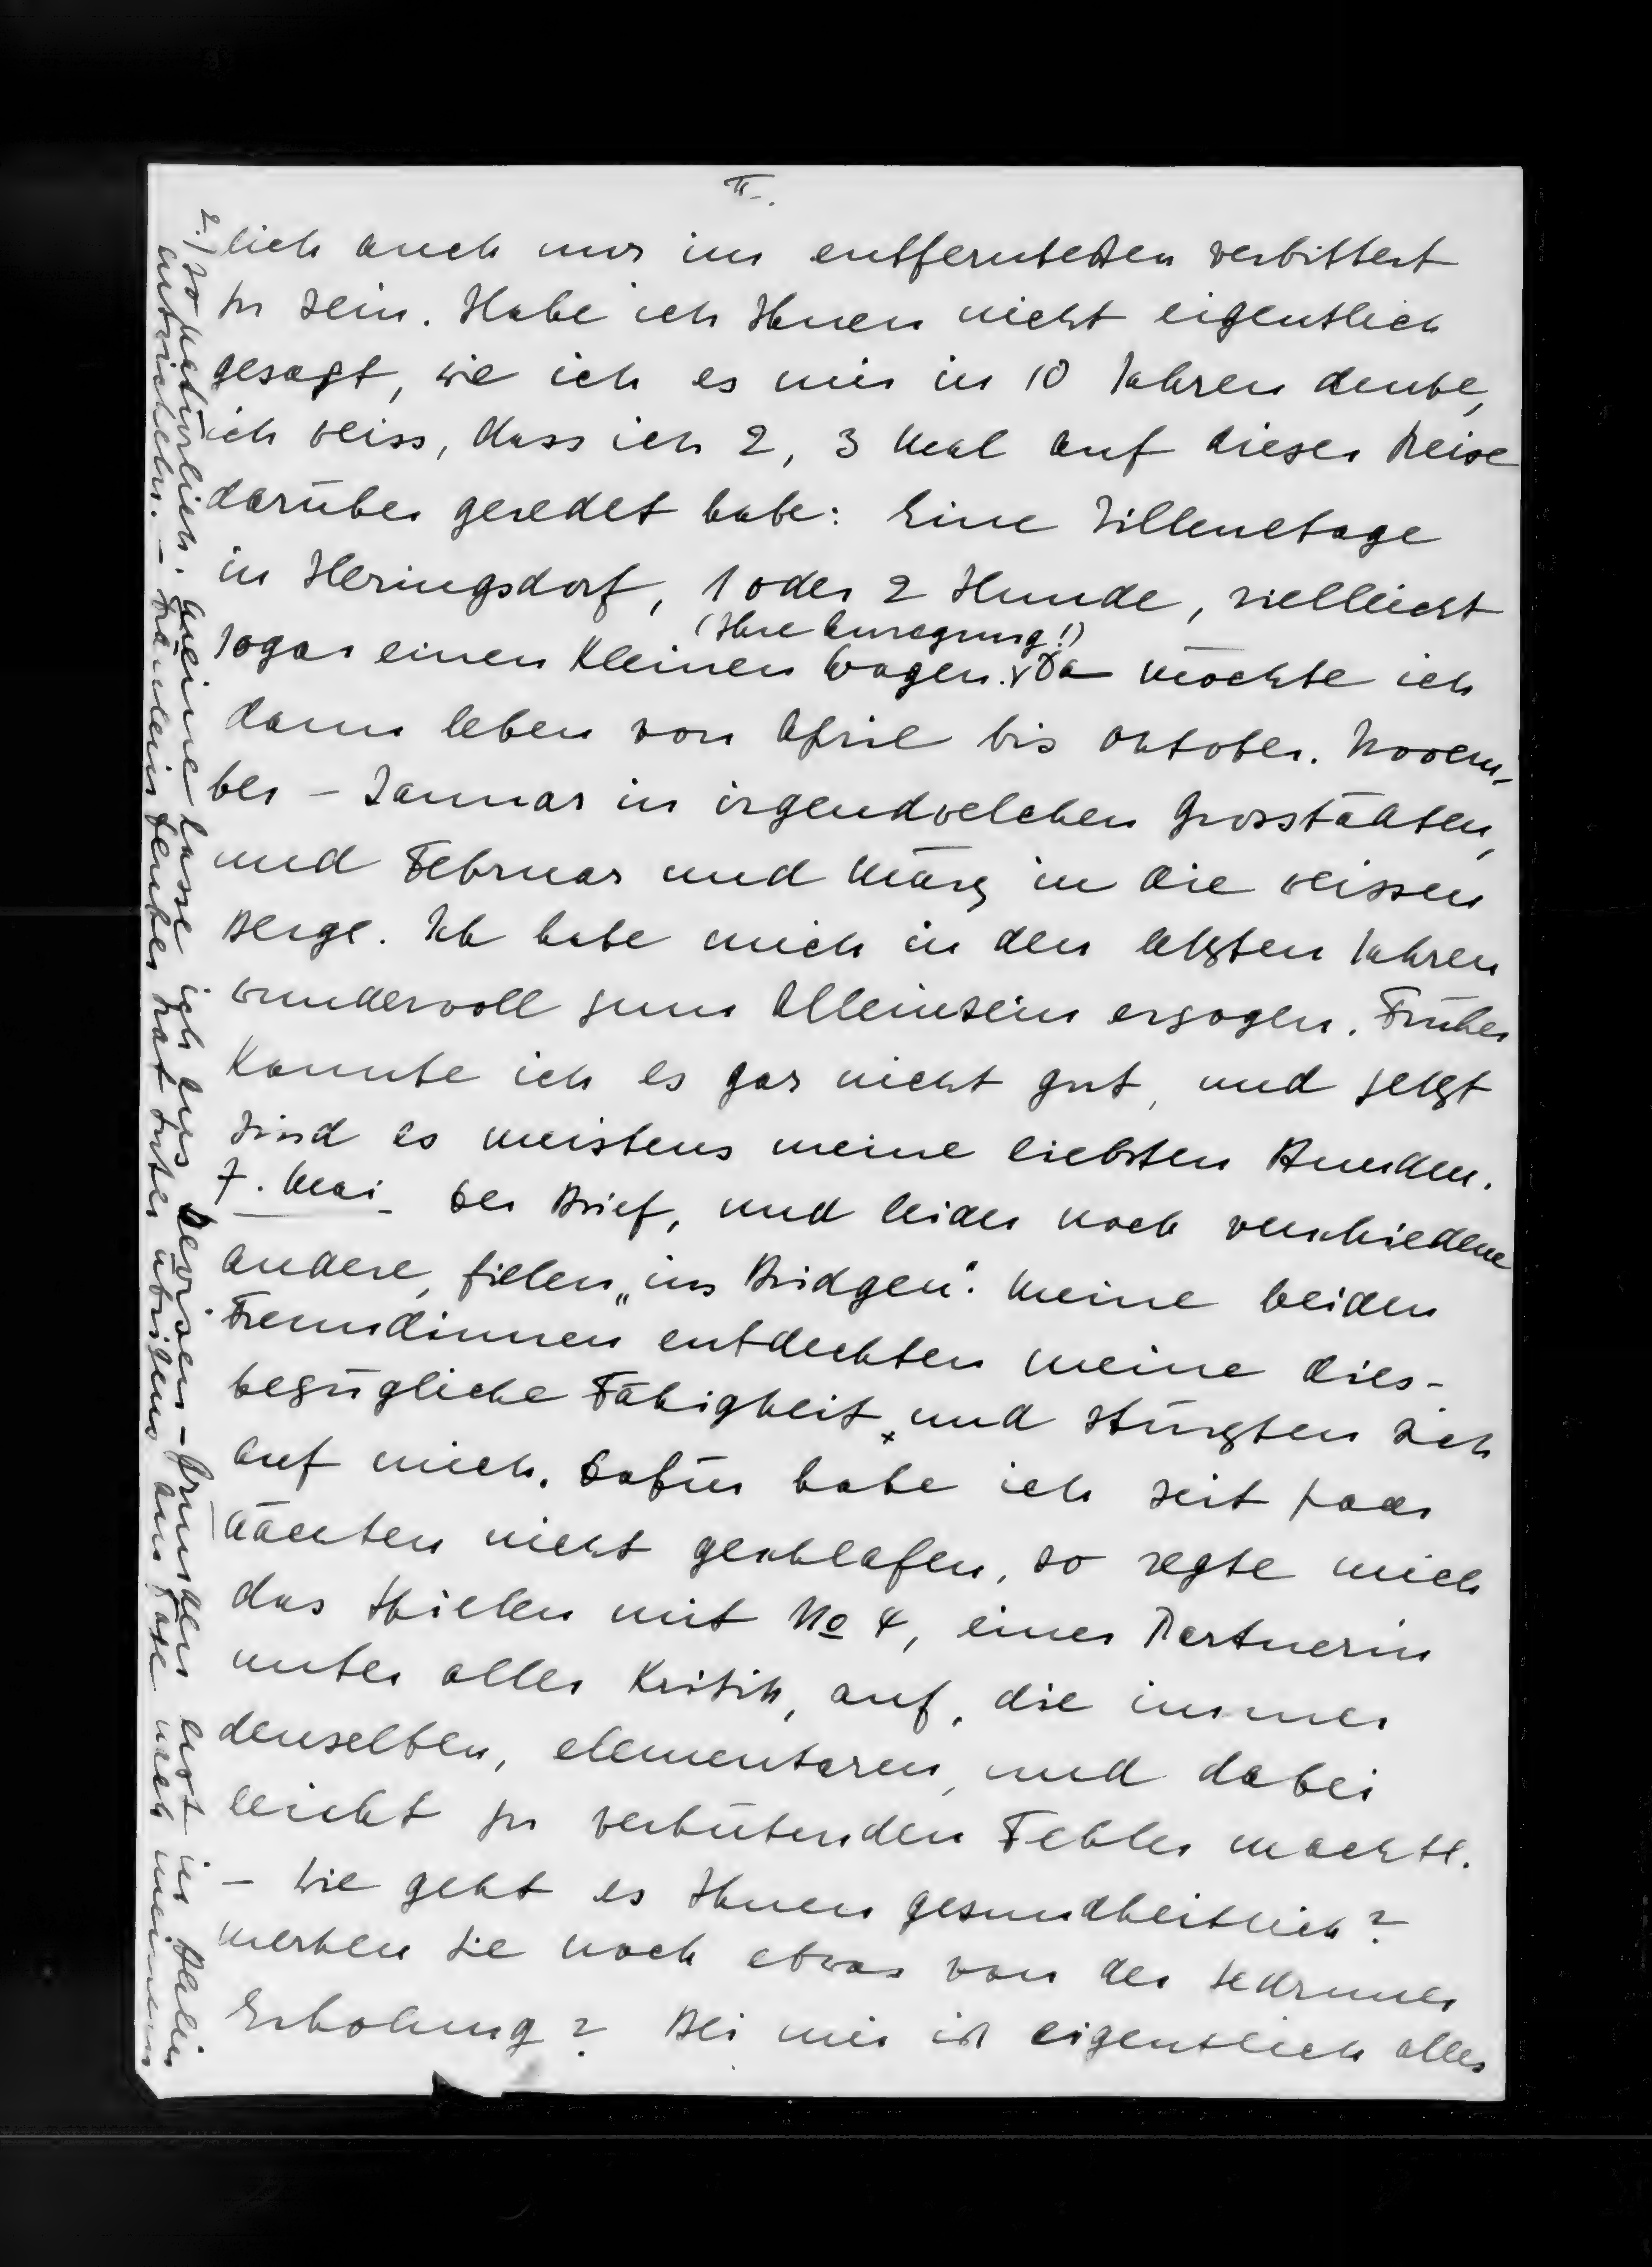 II.
lich auch nur im entferntesten verbittert
zu sein. Habe ich Ihnen nicht eigentlich
gesagt, wie ich es mir in 10 Jahren denke,
ich weiss, dass ich 2, 3 Mal auf dieser Reise
darüber geredet habe: Eine Villenetage
in Heringsdorf, 1 oder 2 Hunde, vielleicht
(Ihre Anregung!)
sogar einen kleinen Wagen. Da möchte ich
dann leben von April bis Oktober. Novem-
ber - Januar in irgendwelchen Grosstädten,
und Februar und März in die weissen
Berge. Ich habe mich in den letzten Jahren
wundervoll zum Alleinsein erzogen. Früher
konnte ich es gar nicht gut, und jetzt
sind es meistens meine liebsten Stunden.
7. Mai - Der Brief, und leider noch verschiedene
andere, fielen „ins Bridgen". Meine beiden
Freundinnen entdeckten meine dies-
bezügliche Fähigkeit x und stürzten sich
auf mich. Dafür habe ich seit paar
Nächten nicht geschlafen, so regte mich
das Spielen mit No 4, einer Partnerin
unter aller Kritik, auf, die immer
denselben, elementaren, und dabei
leicht zu verhütenden Fehler machte.
- Wie geht es Ihnen gesundheitlich?
Merken Sie noch etwas von der Schrunser
Erholung? Bei mir ist eigentlich alles
2.) so natürlich. Meine lasse ich aus Devisen-Gründen erst in Berlin
entwickeln. - Fräulein hat unter übrigens nach meinem